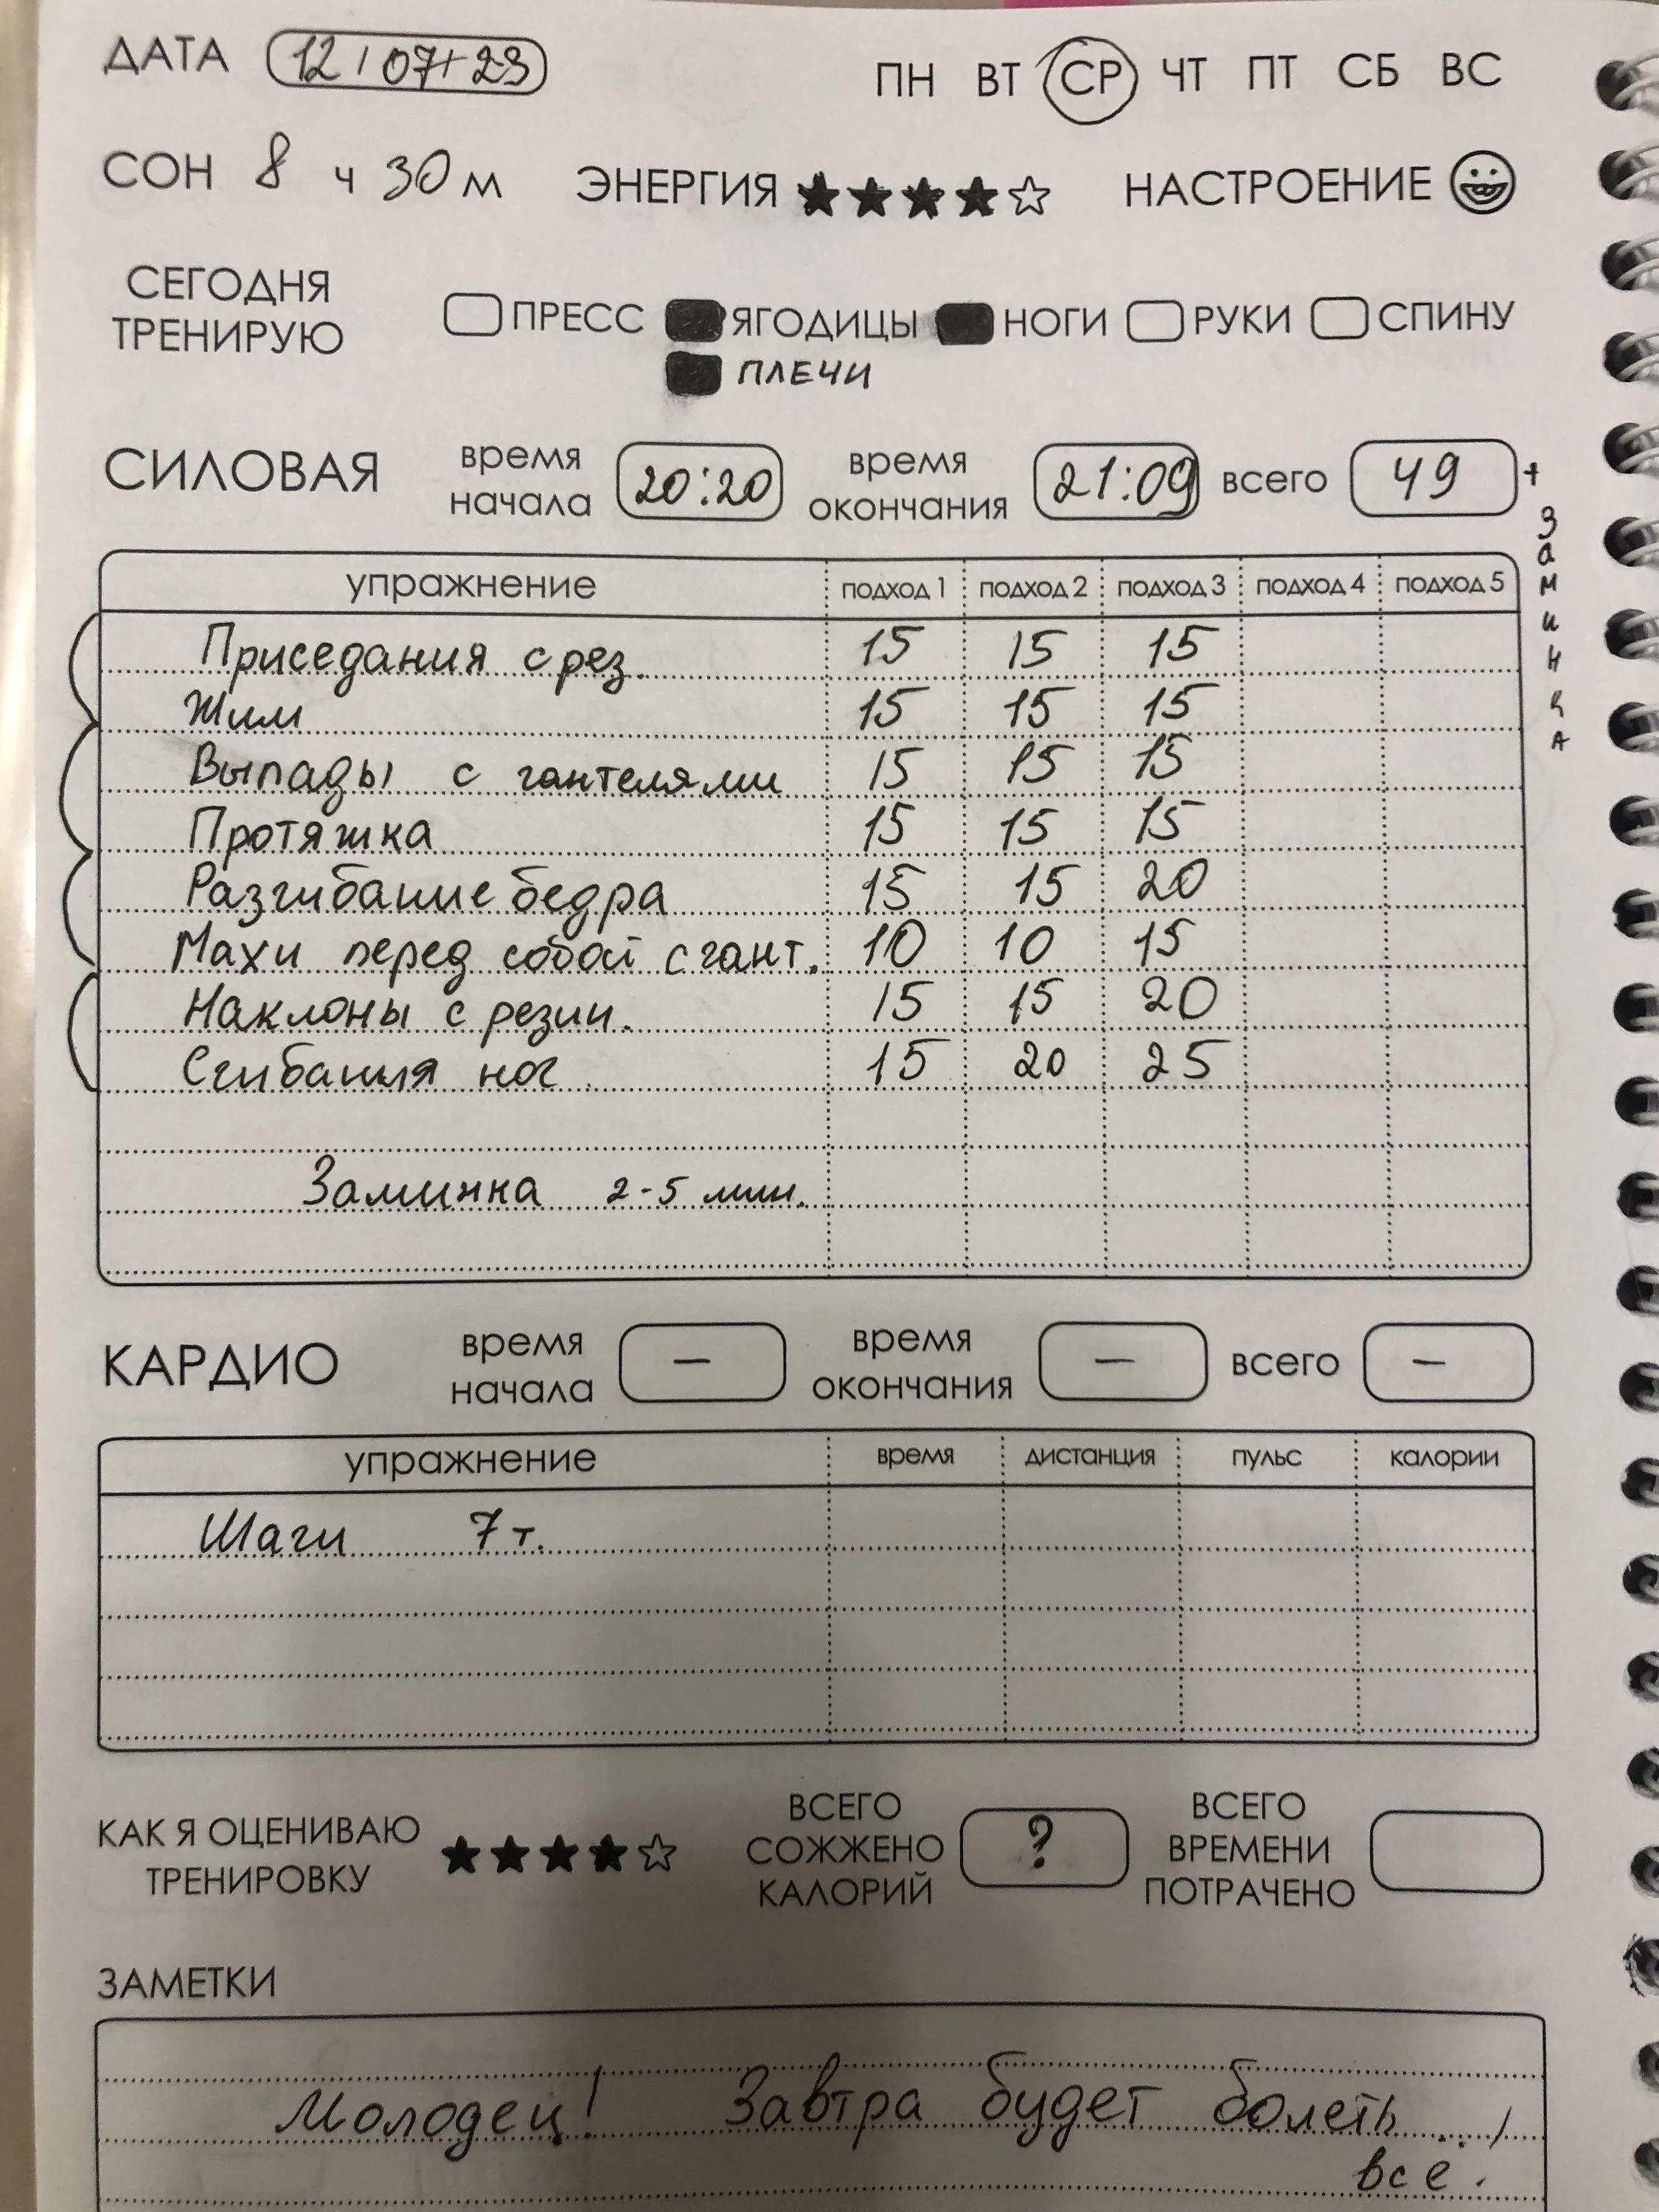 ДАТА 12 / 07 / 23 ПН ВТ СР ЧТ ПТ СБ ВС
СОН 8 ч 30 м ЭНЕРГИЯ ★★★★☆ НАСТРОЕНИЕ
СЕГОДНЯ ТРЕНИРУЮ ПРЕСС ЯГОДИЦЫ НОГИ РУКИ СПИНУ
ПЛЕЧИ
СИЛОВАЯ время начала 20:20 время окончания 21:09 всего 49 + Заминка
упражнение подход 1 подход 2 подход 3 подход 4 подход 5
Приседания с рез. 15 15 15
Жим 15 15 15
Выпады с гантелями 15 15 15
Протяжка 15 15 15
Разгибание бедра 15 15 20
Махи перед собой с гант. 10 10 15
Наклоны с резин. 15 15 20
Сгибания ног 15 20 25
Заминка 2-5 мин.
КАРДИО время начала — время окончания — всего —
упражнение время дистанция пульс калории
Шаги 7 т.
КАК Я ОЦЕНИВАЮ ТРЕНИРОВКУ ★★★★☆ ВСЕГО СОЖЖЕНО КАЛОРИЙ ? ВСЕГО ВРЕМЕНИ ПОТРАЧЕНО
ЗАМЕТКИ
Молодец! Завтра будет болеть
все!